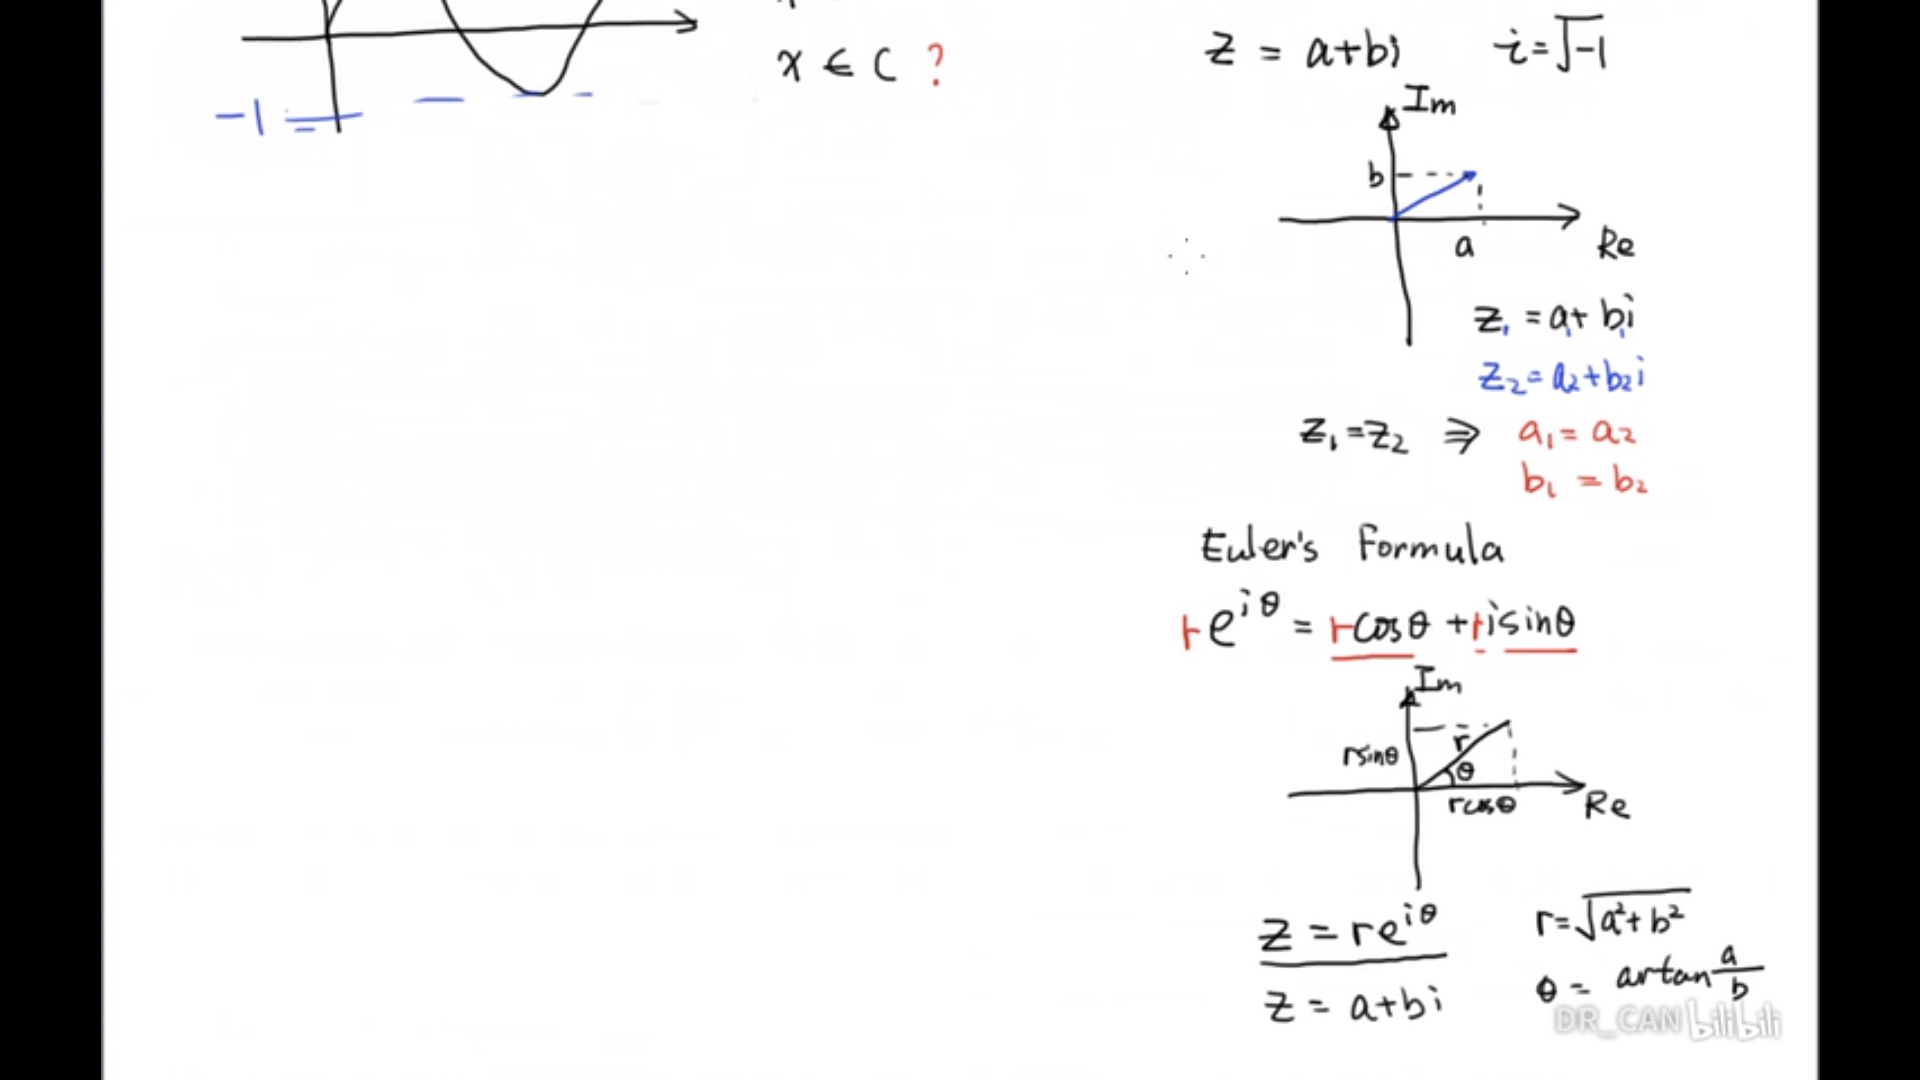 -1
x ∈ C ?
z = a+bi   i=√-1
Im
b
a
Re
z₁ = a₁+ b₁i
z₂ = a₂+b₂i
z₁=z₂ ⇒ a₁= a₂
b₁ = b₂
Euler's Formula
re^{iθ} = rcosθ + risinθ
Im
rsinθ
r
θ
rcosθ
Re
z = re^{iθ}   r=√(a²+b²)
z = a+bi   θ = artan a/b
DR_CAN bilibili